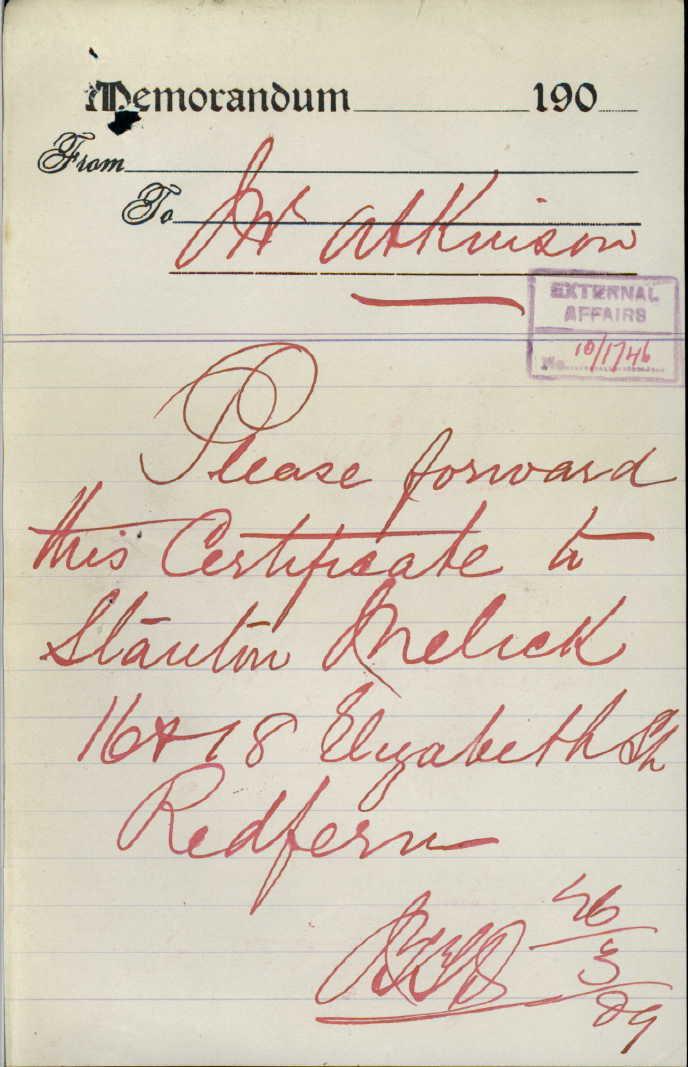 Memorandum 190
From
To Mr Atkinson
EXTERNAL
AFFAIRS
No. 10/1746
Please forward
this Certificate to
Stanton Melick
16 & 18 Elizabeth St
Redfern
26/3/09